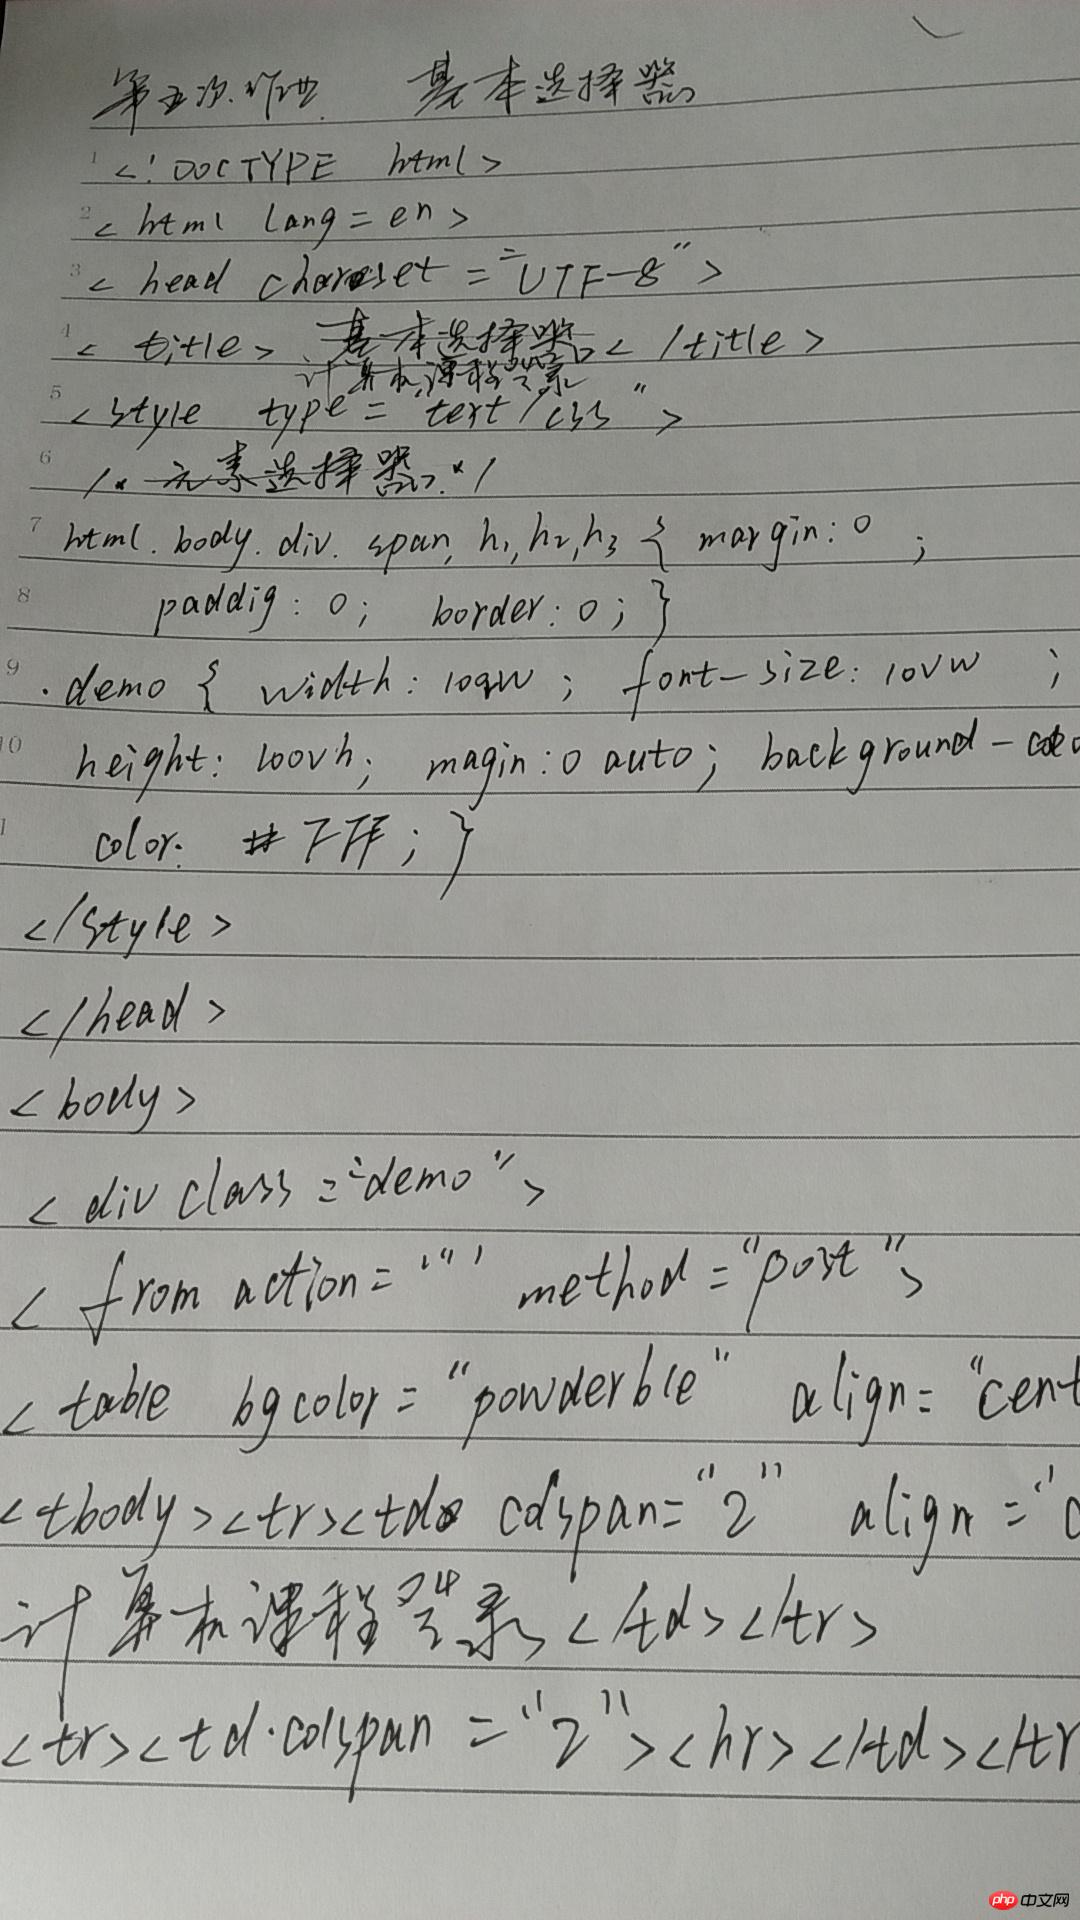 第五次作业 基本选择器
1 <!DOCTYPE html>
2 <html lang=en>
3 <head charset="UTF-8">
4 <title> 基本选择器 </title>
计算机课程登录
5 <style type="text/css">
6 /* 元素选择器 */
7 html.body.div.span,h1,h2,h3 { margin:0 ;
8 paddig:0; border:0;}
9 .demo { width:100vw; font-size:10vw ;
10 height:100vh; magin:0 auto; background-
color: #FFF;}
</style>
</head>
<body>
<div class="demo">
<from action="" method="post">
<table bgcolor="powderble" align="cent
<tbody><tr><td colspan="2" align="c
计算机课程登录</td></tr>
<tr><td colspan="2"><hr></td></tr
php 中文网